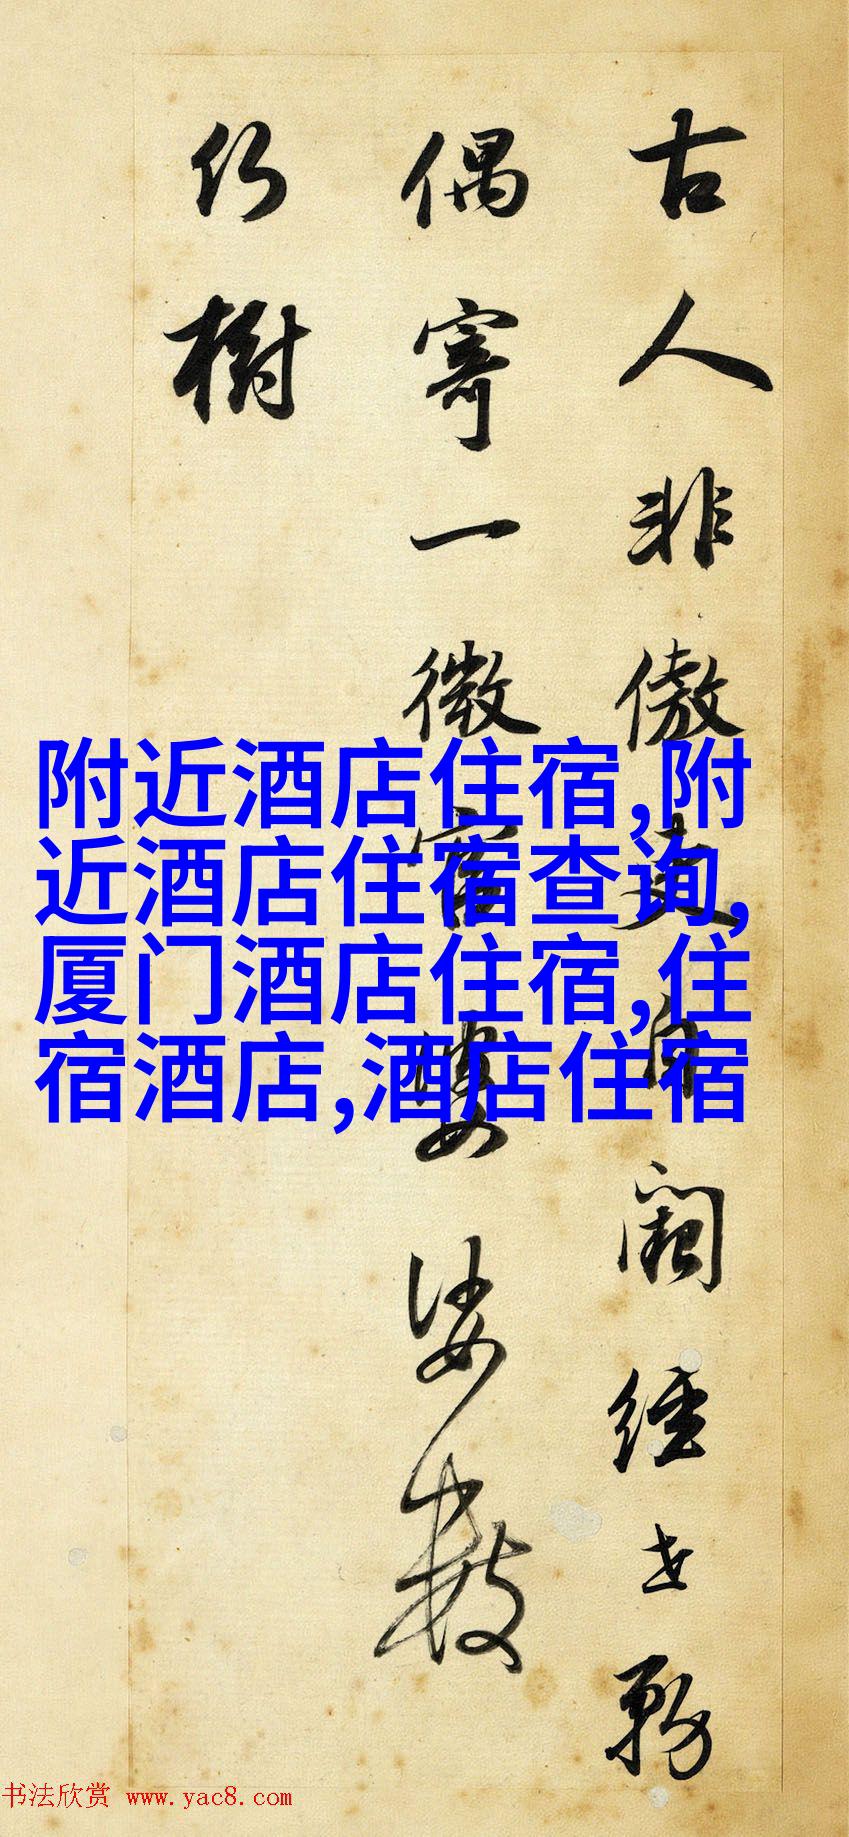 古人非傲吏自闕經世務
偶寄一微官婆娑數
行樹
附近酒店住宿,附
近酒店住宿查询,
厦门酒店住宿,住
宿酒店,酒店住宿
书法欣赏 www.yac8.com